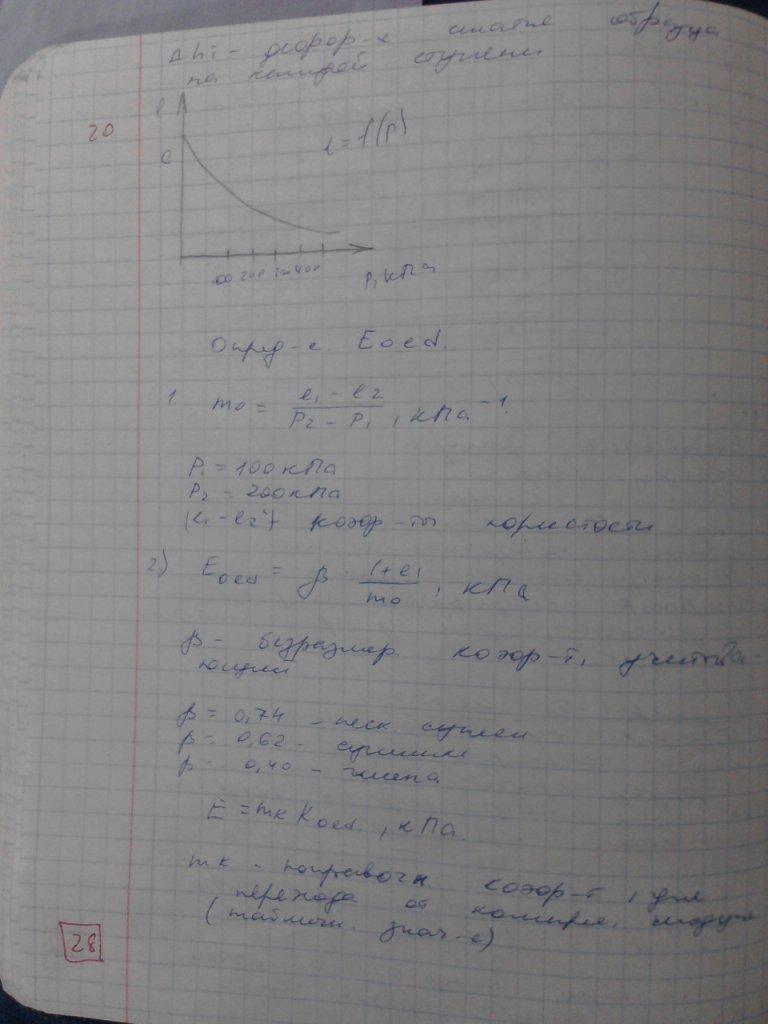 Δhi - дефор-е сжатие образца
на каждой ступени
20
e
e = f(P)
e
100 200 300 400
P, кПа
Опред-е Eoed.
1 mo = (e1 - e2) / (P2 - P1), кПа⁻¹
P1 = 100 кПа
P2 = 200 кПа
(e1 - e2) коэф-ты пористости
2) Eoed = β · (1+e1) / mo, кПа
β - безразмер. коэф-т, учитыва-
ющий
β = 0,74 - песк. супеси
β = 0,62 - суглинки
β = 0,40 - глина
E = mк Koed., кПа
mк - поправочн. коэф-т, для
перехода от компрес. модуля
(табличн. знач-е)
28